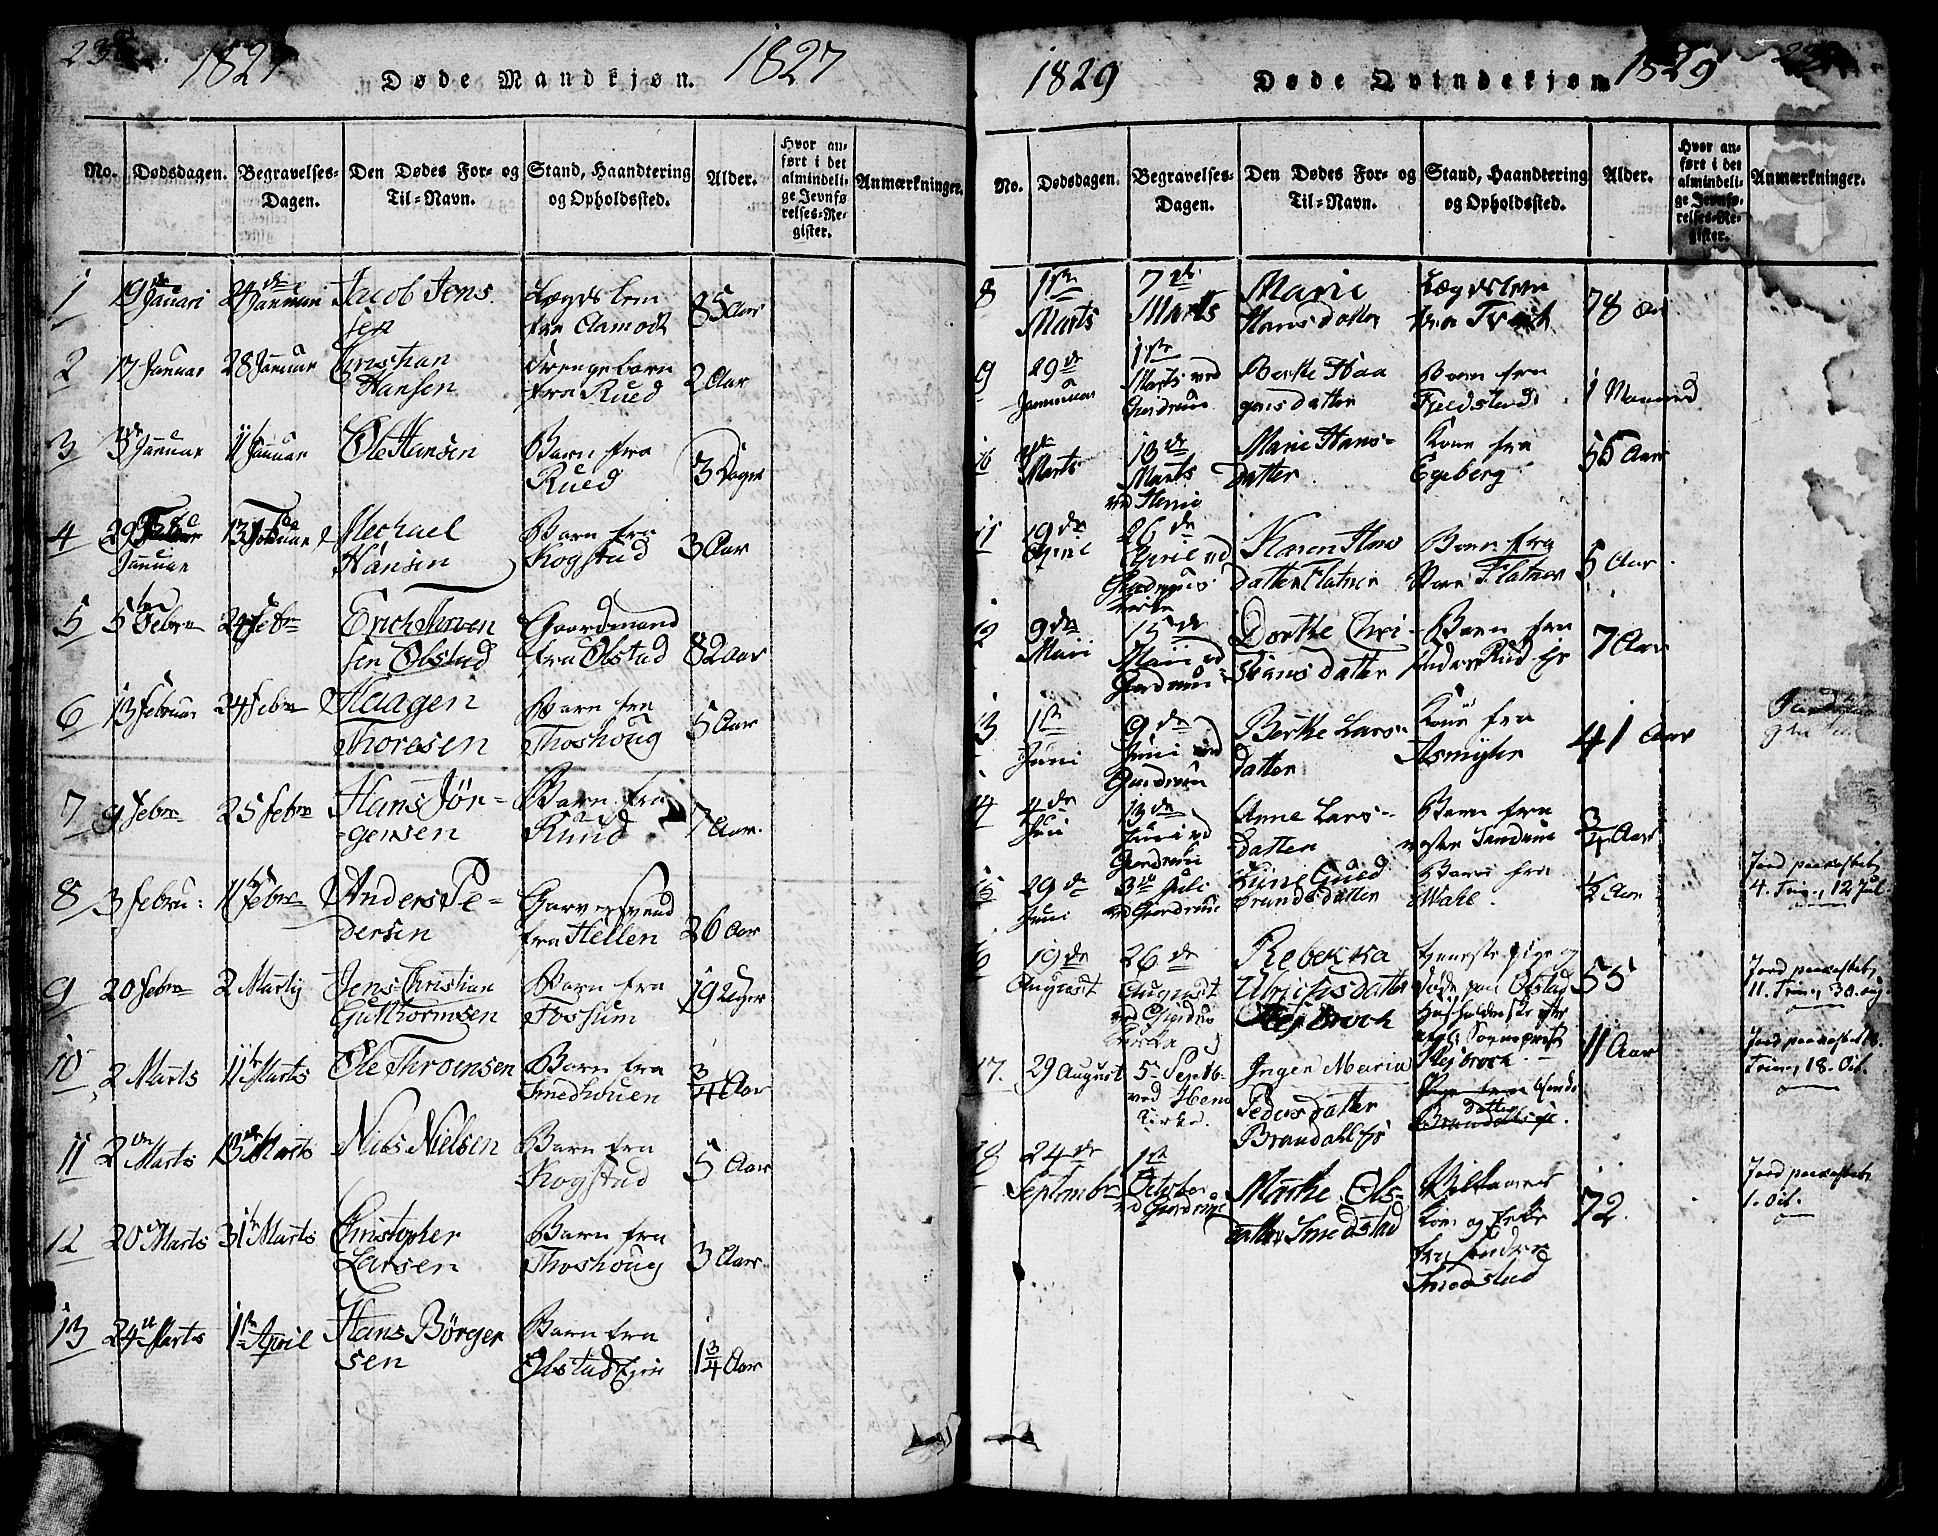 1827 Døde Mandkjøn. 1827
No. Dødsdagen. Begravelses-Dagen. Den Dødes For- og Til-Navn. Stand, Haandtering og Opholdssted. Alder. Hvor anført i det almindelige Jevnførelses-Register. Anmærkninger.
1 19de Januari 24de Januari Jacob Jens
sen Lægdslem fra Aamodt 85 Aar
2 17 Januar 28 Januar Christian
Hansen Drengebarn fra Rued 2 Aar
3 3de Januar 11 Januar Ole Hansen Barn fra
Rued 3 Dager
4 29 Januar 13 Februar Mechael
Hansen Barn fra Kogstad 3 Aar
5 5 Febru 24 Febr Erich Throen
sen Ølstad Gaardmand fra Ølstad 82 Aar
6 13 Februar 24 Febr Haagen
Thoresen Barn fra Thoshoug 5 Aar
7 9 Febru 25 Febru Hans Jør-
gensen Barn fra Ruud 7 Aar
8 3 Febru: 11 Febru Anders Pe-
dersen Garversvend fra Hellen 26 Aar
9 20 Febru 2 Martij Jens Christian
Guthormsen Barn fra Fossum 19 Uger
10 2 Marts 11te Marts Ole Throensen Barn fra
Smedhouen 3/4 Aar
11 2den Marts 13de Marts Niels Nielsen Barn fra
Kogstad 5 Aar
12 20de Marts 31te Marts Christopher
Larsen Barn fra Thoshoug 3 Aar
13 24de Marts 1ste April Hans Børger
sen Barn fra Ølstad Eje 1 3/4 Aar
1829 Døde Qvindekjøn 1829
No. Dødsdagen. Begravelses-Dagen. Den Dødes For- og Til-Navn. Stand, Haandtering og Opholdssted. Alder. Hvor anført i det almindelige Jevnførelses-Register. Anmærkninger.
8 1ste Marts 7de Marts Marie
Hansdatter Lægdslem fra 78 Aar
9 29de Januar 1ste Marts ved Gjerdrum Berthe Haa
gensdatter Barn fra Fjeldstad 1 Maaned
10 Marts 13de Marts ved Heni Marie Hans-
datter Kone fra Egeberg 55 Aar
11 19de April 26de April ved Gjerdrums Kirke Karen Hans
datter Flatner Barn fra Flatner 5 Aar
12 9de Maii 15de Maii ved Gjerdrum Dorthe Chri-
stiansdatter Barn fra Rud Eje 7 Aar
13 1ste Juni 9de Juni ved Gjerdrum Berthe Lars-
datter Kone fra Asmyhr 41 Aar
14 4de Juni 13de Juni ved Gjerdrum Anne Lars-
datter Barn fra 3/4 Aar
15 29de Juni 3die Juli ved Gjerdrum Gud
brandsdatter Barn fra Wahl. 1/2 Aar Jord paakastet, 4. Trin., 12 Jul.
16 19de August 26de August ved Gjerdrum Kirke Rebekka
Ulrichsdatter Plej Broch tjenestepige og døde paa Ølstad Huusholderske efter Sognepræst Plejbroch. 55 Jord paakastet, 11. Trin., 30. Aug.
17. 29 August 5 Septb. ved Heni Kirke. Ingen Maria
Pedersdatter
Brandahl Eje 11 Aar Jord paakastet 18. Trin., 18. Oct.
18 24de September 1ste October ved Gjerdrum Marthe Ols-
datter Smedstad Kone og Enke fra Søndre Smedstad 72. Jord paakastet, 1. Oct.